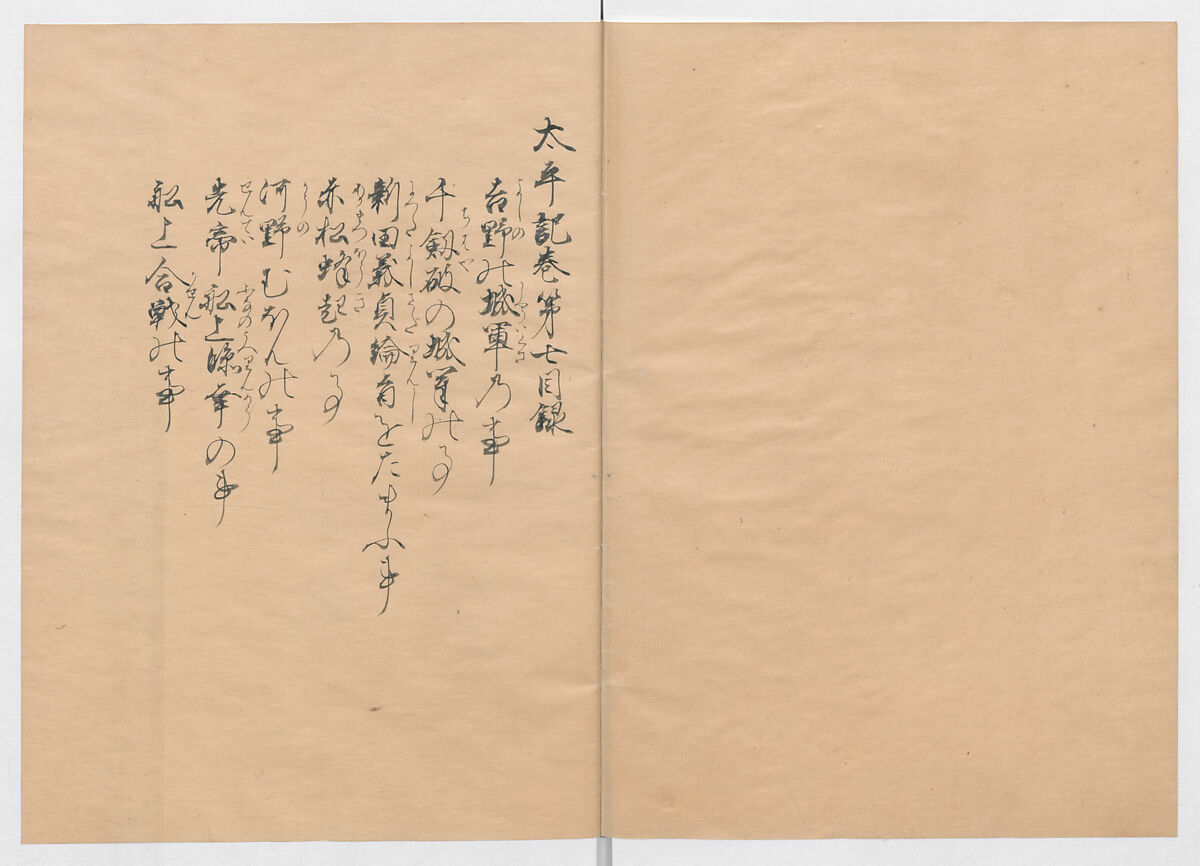 太平記巻第七目録
吉野の城軍の事
千剱破の城軍の事
新田義貞綸旨をたまふ事
赤松蜂起の事
河野むほんの事
先帝船上臨幸の事
船上合戦の事